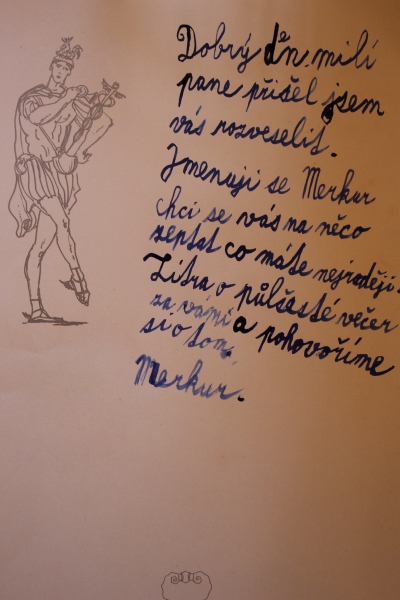 Dobrý den. milí
pane přišel jsem
vás rozveselit.
Jmenuji se Merkur
chci se vás na něco
zeptat co máte nejraději.
Zítra o půlšesté večer
za vámi a pohovoříme
si o tom.
Merkur.